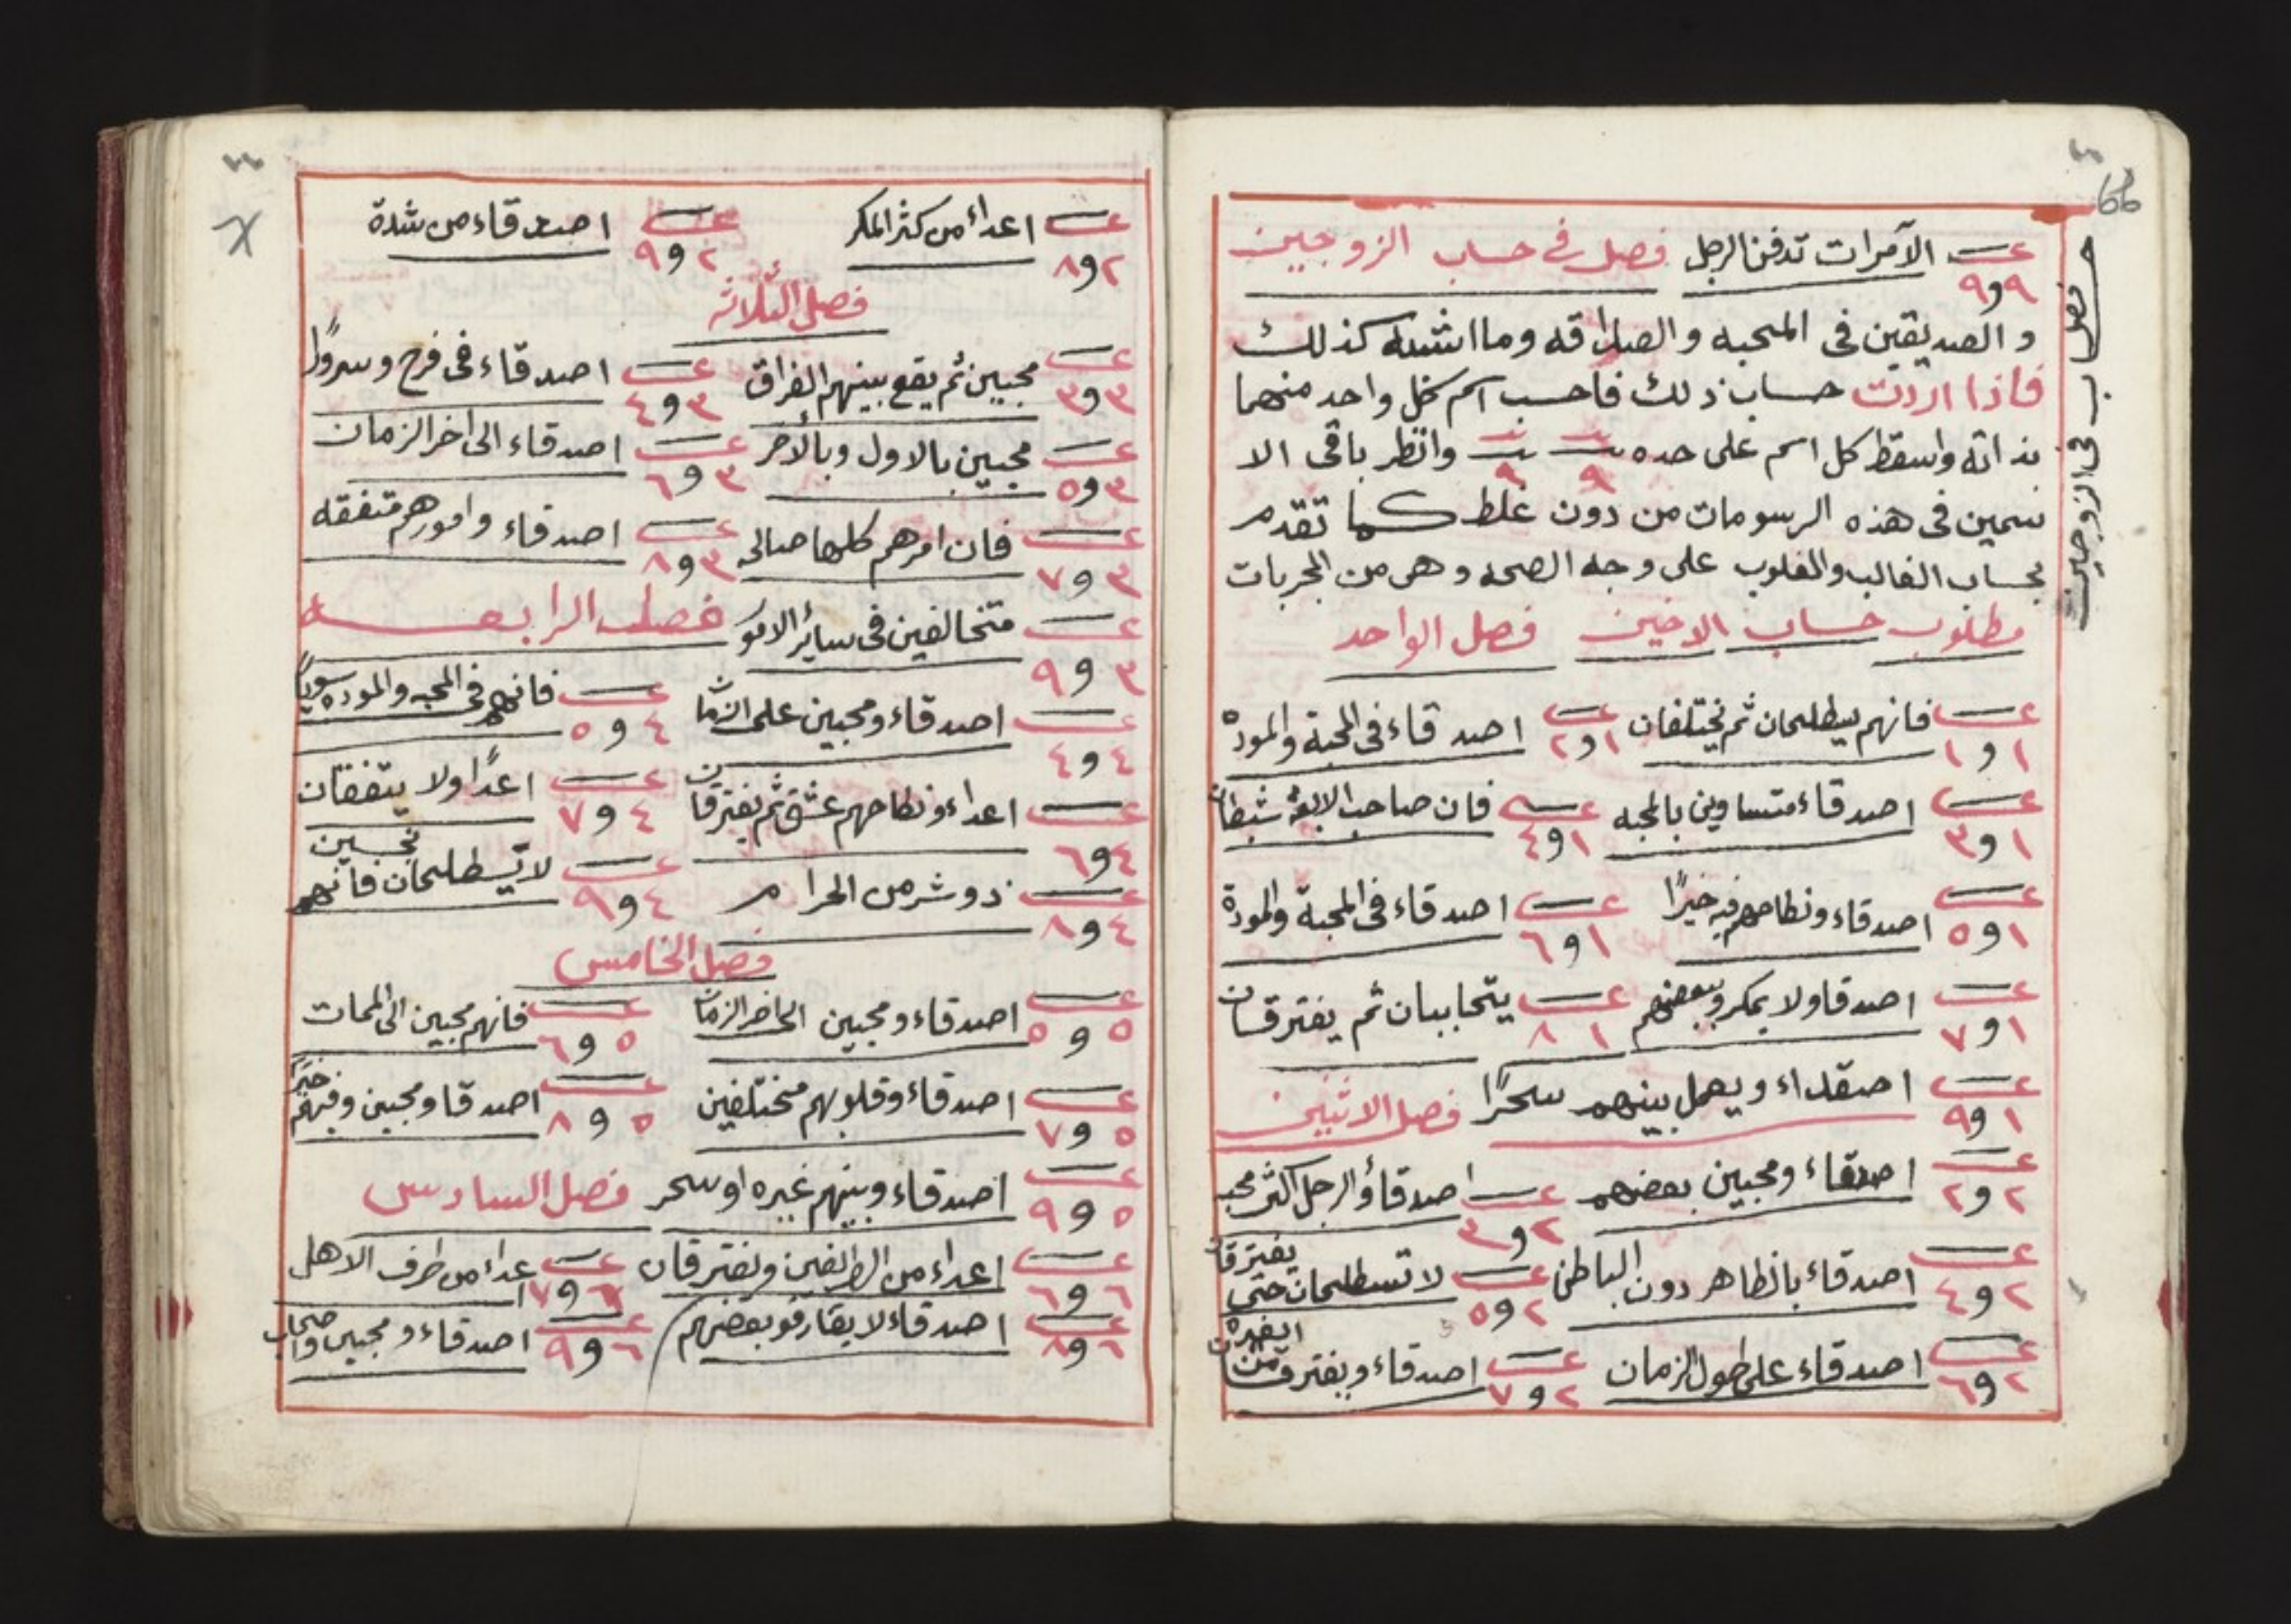 66
فصل حساب في الزوجين
عـــ ٩و٩ الآمرات تدفن الرجل فصل في حساب الزوجين
و الصديقين في المحبه والصداقه وما اشبه كذلك
فاذا اردت حساب ذلك فاحسب اسم كل واحد منهما
بذاته واسقط كل اسم على حده ٩ ٩ وانظر باقى الا
سمين فى هذه الرسومات من دون غلط كما تقدم
بحساب الغالب والمغلوب على وجه الصحه وهى من المجربات
مطلوب حساب الاخين فصل الواحد
عـــ ١و١ فانهم يسطلحان ثم يختلفان عـــ ١و٢ اصدقاء فى المحبة والموده
عـــ ١و٣ اصدقاء متساوين بالمحبه عـــ ١و٤ فان صاحب الابعة شيطان
عـــ ١و٥ اصدقاء ونطاحهم فيه خيرًا عـــ ١و٦ اصدقاء فى المحبة والمودة
عـــ ١و٧ اصدقا ولا يمكرو ببعضهم عـــ ١ ٨ يتحاببان ثم يفترقان
عـــ ١و٩ اصقداء ويعمل بينهم سحرًا فصل الاثنين
عـــ ٢و٢ اصدقاء ومحبين بعضهم عـــ ٢و٣ اصدقاؤ الرجل اكثر محبه
عـــ ٢و٤ اصدقاء بالظاهر دون الباطن عـــ ٢و٥ لا تسطلحان حتى يفترقان
عـــ ٢و٦ اصدقاء على طول الزمان عـــ ٢و٧ اصدقاء ويفترقان من الغيرة
عـــ ٢و٨ اعداء من كثر المكر عـــ ٢و٩ اصدقاء من شدة
فصل الثلاثه
عـــ ٣و٣ محبين ثم يقع بينهم الفراق عـــ ٣و٤ اصدقاء فى فرح وسرورًا
عـــ ٣و٥ محبين بالاول وبالأخر عـــ ٣و٦ اصدقاء الى اخر الزمان
عـــ ٣و٧ فان امرهم كلها صالحه عـــ ٣و٨ اصدقاء وامورهم متفقه
عـــ ٣و٩ متخالفين فى سائر الامور فصل الرابعه
عـــ ٤و٤ اصدقاء ومحبين على الزمان عـــ ٤و٥ فانهم فى المحبه والموده سويًا
عـــ ٤و٦ اعداء ونطاحهم عشق ثم يفترقان عـــ ٤و٧ اعدًا ولا يتفقان
عـــ ٤و٨ ذو شر من الحرام عـــ ٤و٩ لا يسطلحان فانهم نحسين
فصل الخامس
عـــ ٥و٥ اصدقاء ومحبين الى اخر الزمان عـــ ٥و٦ فانهم محبين الى الممات
عـــ ٥و٧ اصدقاء وقلوبهم مختلفين عـــ ٥و٨ اصدقا ومحبين وفيهم خيرًا
عـــ ٥و٩ اصدقاء وبينهم غيره او سحر فصل السادس
عـــ ٦و٦ اعداء من الطرفين ويفترقان عـــ ٦و٧ اعداء من طرف الاهل
عـــ ٦و٨ اصدقاء لا يفارقو بعضهم عـــ ٦و٩ اصدقاء ومحبين واصحاب